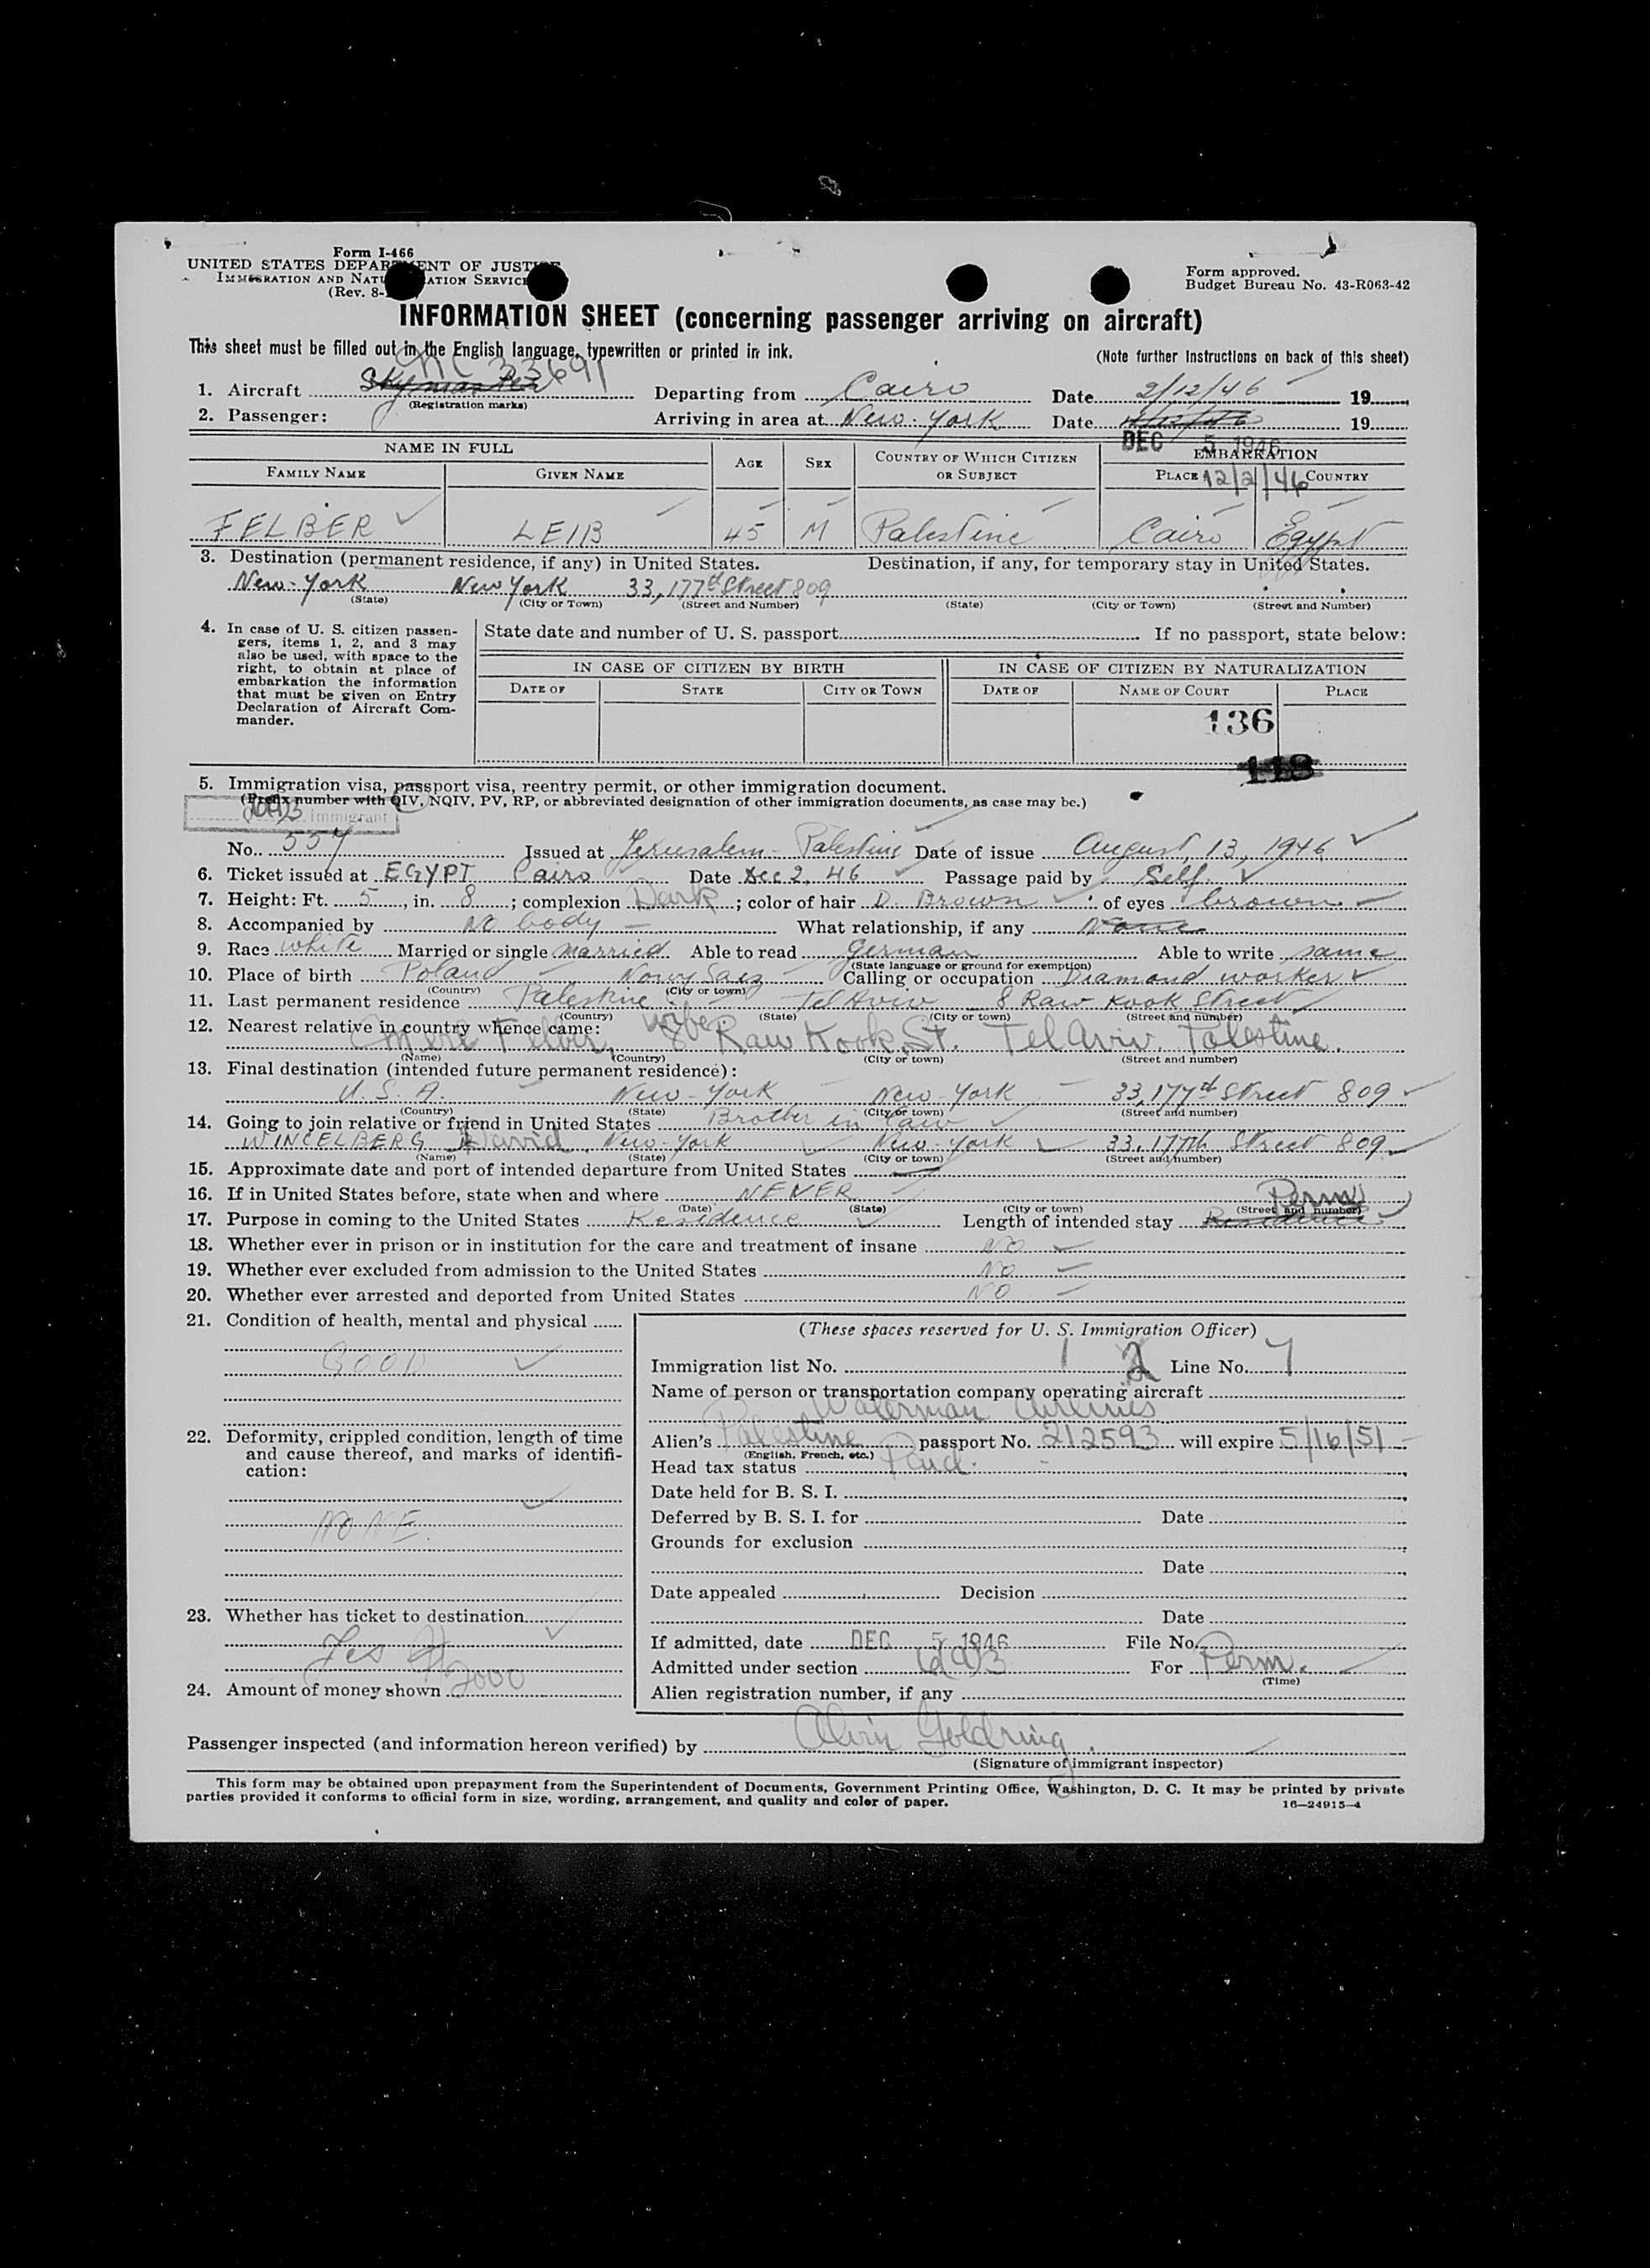 Form I-466
UNITED STATES DEPARTMENT OF JUSTICE
IMMIGRATION AND NATURALIZATION SERVICE
(Rev. 8-
Form approved.
Budget Bureau No. 43-R063-42
INFORMATION SHEET (concerning passenger arriving on aircraft)
This sheet must be filled out in the English language, typewritten or printed in ink.
(Note further instructions on back of this sheet)
NC 33691
1. Aircraft Skymaster Departing from Cairo Date 2/12/46 19
(Registration marks)
2. Passenger: Arriving in area at New-York Date 19
DEC 5 1946
NAME IN FULL AGE SEX COUNTRY OF WHICH CITIZEN OR SUBJECT EMBARKATION
FAMILY NAME GIVEN NAME PLACE 12/2/46 COUNTRY
FELBER LEIB 45 M Palestine Cairo Egypt
3. Destination (permanent residence, if any) in United States. Destination, if any, for temporary stay in United States.
New-York New York 33, 177th Street 809
(State) (City or Town) (Street and Number) (State) (City or Town) (Street and Number)
4. In case of U. S. citizen passen-
gers, items 1, 2, and 3 may
also be used, with space to the
right, to obtain at place of
embarkation the information
that must be given on Entry
Declaration of Aircraft Com-
mander.
State date and number of U. S. passport If no passport, state below:
IN CASE OF CITIZEN BY BIRTH IN CASE OF CITIZEN BY NATURALIZATION
DATE OF STATE CITY OR TOWN DATE OF NAME OF COURT PLACE
136
118
5. Immigration visa, passport visa, reentry permit, or other immigration document.
(Prefix number with QIV, NQIV, PV, RP, or abbreviated designation of other immigration documents, as case may be.)
Immigrant
No. 557 Issued at Jerusalem - Palestine Date of issue August, 13, 1946
6. Ticket issued at EGYPT Cairo Date Dec 2, 46 Passage paid by Self
7. Height: Ft. 5, in. 8; complexion Dark; color of hair D. Brown of eyes brown
8. Accompanied by No body What relationship, if any None
9. Race white Married or single married Able to read German Able to write same
(State language or ground for exemption)
10. Place of birth Poland Nowy Sacz Calling or occupation Diamond worker
(Country) (City or town)
11. Last permanent residence Palestine Tel Aviv 8 Raw Kook Street
(Country) (State) (City or town) (Street and number)
12. Nearest relative in country whence came: wife
Felber, 8 Raw Kook St. Tel Aviv. Palestine.
(Name) (Country) (City or town) (Street and number)
13. Final destination (intended future permanent residence):
U. S. A. New-York New-York 33, 177th Street 809
(Country) (State) (City or town) (Street and number)
14. Going to join relative or friend in United States Brother in law
WINCELBERG David, New-York New-York 33, 177th Street 809
(Name) (State) (City or town) (Street and number)
15. Approximate date and port of intended departure from United States
16. If in United States before, state when and where NEVER
(Date) (State) (City or town) (Street and number)
Perm
17. Purpose in coming to the United States Residence Length of intended stay Residence
18. Whether ever in prison or in institution for the care and treatment of insane NO
19. Whether ever excluded from admission to the United States NO
20. Whether ever arrested and deported from United States NO
21. Condition of health, mental and physical
GOOD
22. Deformity, crippled condition, length of time
and cause thereof, and marks of identifi-
cation:
NONE.
23. Whether has ticket to destination
Yes
24. Amount of money shown 2000
(These spaces reserved for U. S. Immigration Officer)
Immigration list No. 1 2 Line No. 7
Name of person or transportation company operating aircraft
Waterman Airlines
Alien's Palestine passport No. 212593 will expire 5/16/51
(English, French, etc.)
Head tax status Paid.
Date held for B. S. I.
Deferred by B. S. I. for Date
Grounds for exclusion
Date
Date appealed Decision
Date
If admitted, date DEC 5 1946 File No.
Admitted under section 6(a)3 For Perm.
(Time)
Alien registration number, if any
Passenger inspected (and information hereon verified) by Alvin Goldring
(Signature of immigrant inspector)
This form may be obtained upon prepayment from the Superintendent of Documents, Government Printing Office, Washington, D. C. It may be printed by private
parties provided it conforms to official form in size, wording, arrangement, and quality and color of paper. 16—24915-4